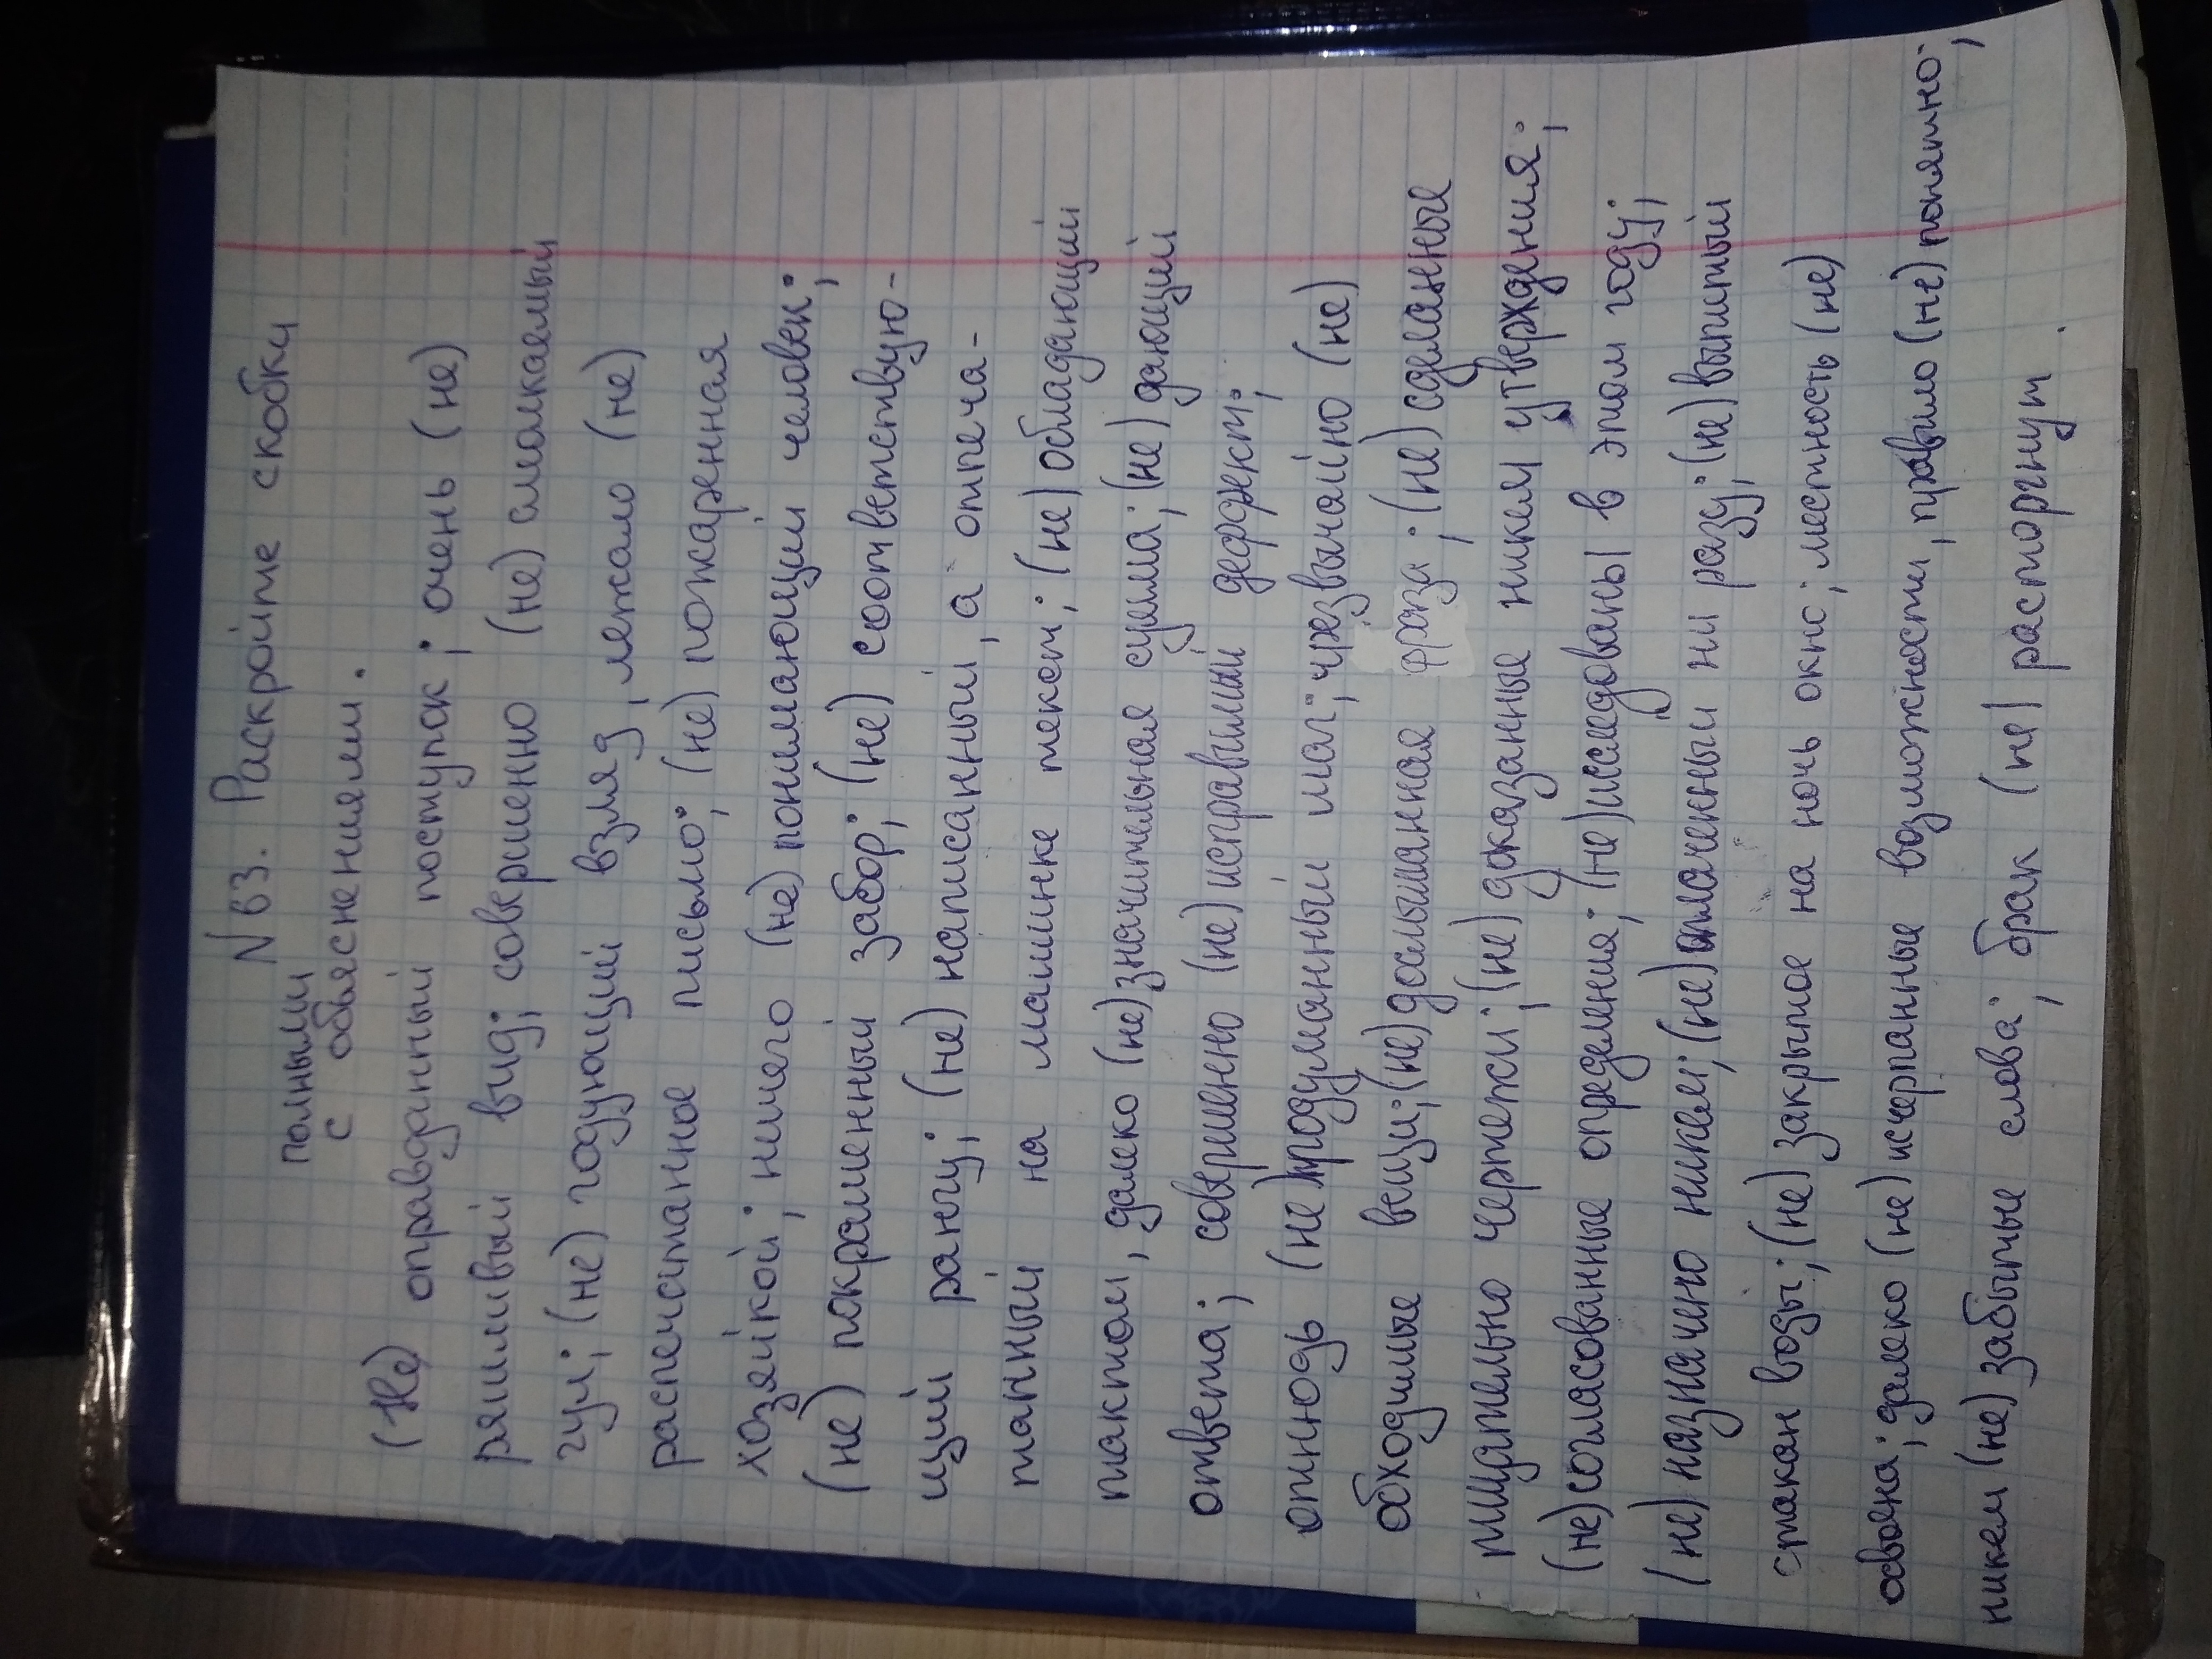 N 63. Раскройте скобки
полными
с объяснениями.
(Не) оправданный поступок; очень (не)
ряшливый вид; совершенно (не) смолкаемый
гул; (не) годующий взляд, лежало (не)
распечатанное письмо; (не) пожаренная
хозяйкой; ничего (не) понимающий человек;
(не) покрашенный забор; (не) соответствую-
щий рангу; (не) написанный, а отпеча-
танный на машинке текст; (не) обладающий
тактом, далеко (не) значительная сумма; (не) дающий
ответа; совершенно (не) исправимый дефект;
отнюдь (не) продуманный шаг; чрезвычайно (не)
обходимые вещи; (не) дослышанная фраза; (не) сделанные
тщательно чертежи; (не) доказанные никем утверждения;
(не) согласованные определения; (не) исследованы в этом году;
(не) назначено никем; (не) оплаченный ни разу; (не) выпитый
стакан воды; (не) закрытое на ночь окно; местность (не)
освоена; далеко (не) исчерпанные возможности, правило (не) понятно;
никем (не) забытые слова; брак (не) расторгнут.